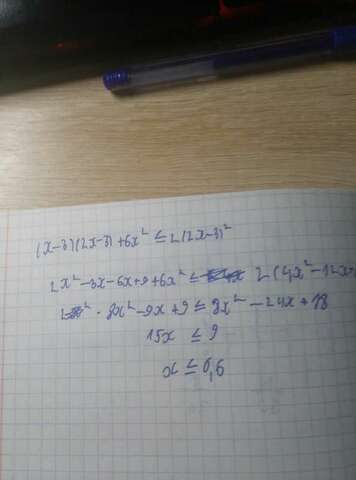 (x-3)(2x-3)+6x² ≤ 2(2x-3)²
2x²-3x-6x+9+6x² ≤ 2(4x²-12x+
8x²-9x+9 ≤ 8x²-24x+18
15x ≤ 9
x ≤ 0,6